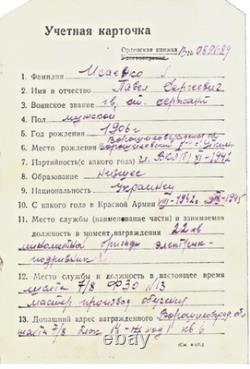 Учетная карточка
Орденская книжка В № 089689
1. Фамилия Исаенко
2. Имя и отчество Павел Сергеевич
3. Воинское звание гв. ст. сержант
4. Пол мужской
5. Год рождения 1906 г.
6. Место рождения
7. Партийность (с какого года) чл. ВКП(б) VI-1942
8. Образование низшее
9. Национальность Украинец
10. С какого года в Красной Армии VII-1942
11. Место службы (наименование части) и занимаемая
должность в момент награждения 22 гв
минометной бригады электрик-
подрывник
12. Место службы и должность в настоящее время
шахта 7/8 ФЗО №13
мастер производ обучения
13. Домашний адрес награжденного Ворошиловград об
шахта 7/8 кв 6
(См. н/об.)